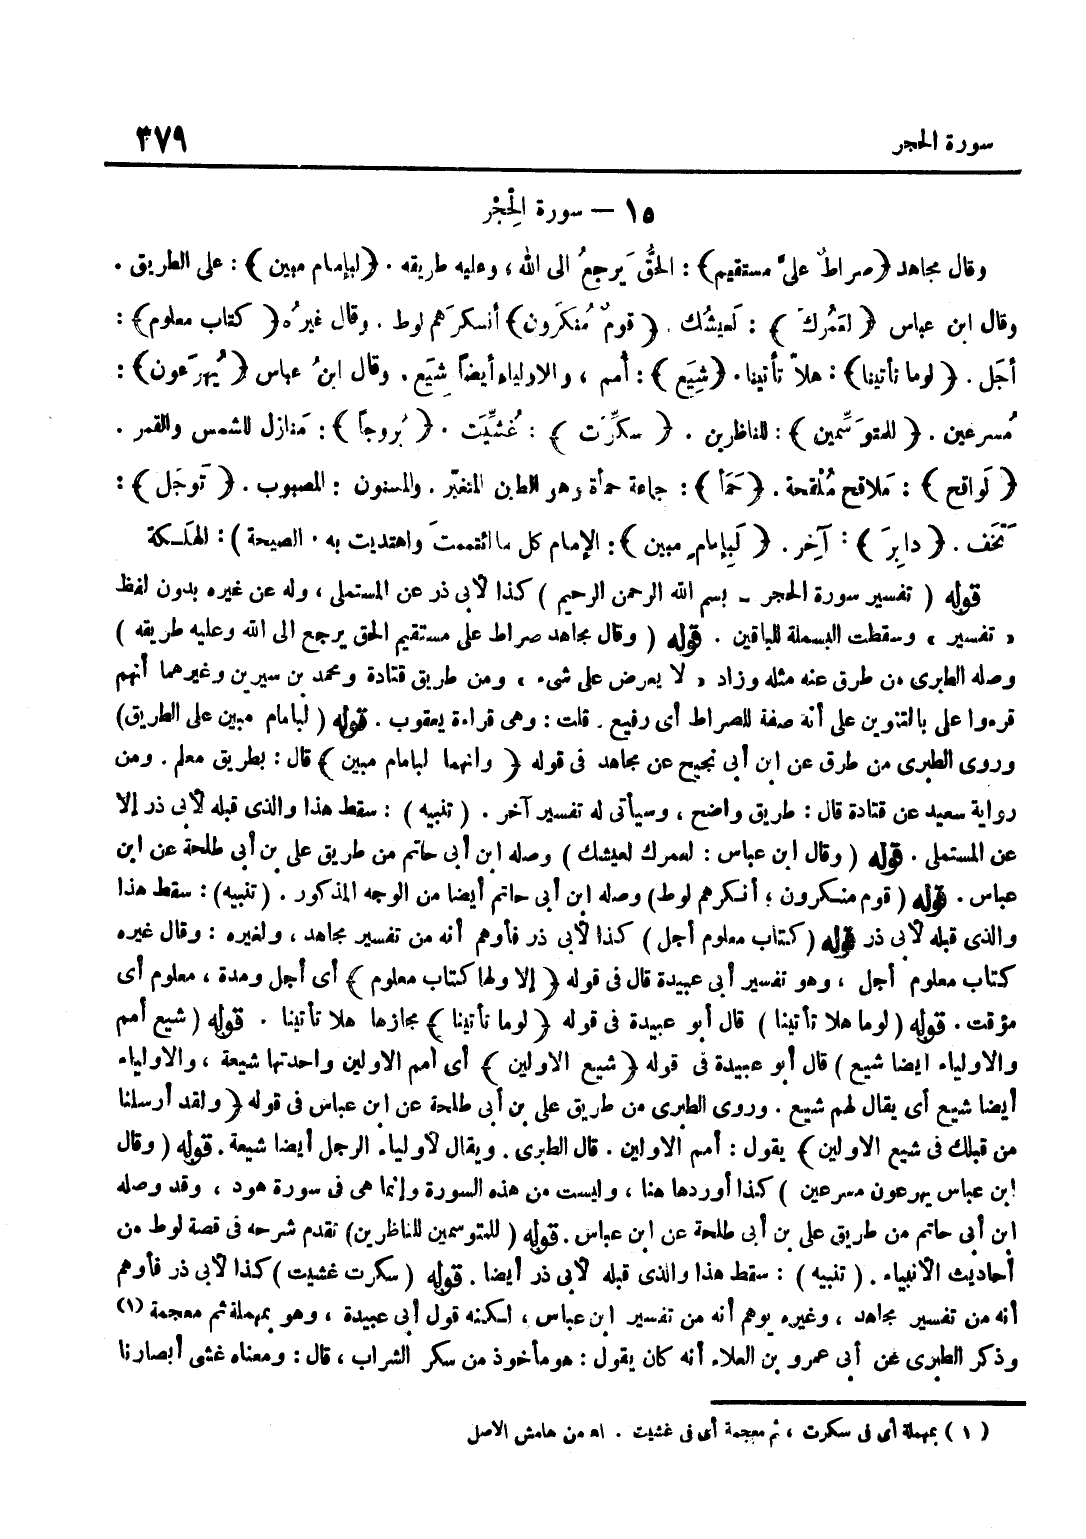 سورة الحجر ٣٧٩
١٥ – سورة الْحِجْر
وقال مجاهد ﴿صراطٌ علىَّ مستقيم﴾ : الحقُّ يَرجعُ الى الله ، وعليه طريقه . ﴿لبإمام مبين﴾ : على الطريق .
وقال ابن عباس ﴿لعَمْرك﴾ : لَعيشُك . ﴿قومٌ مُنكَرون﴾ أنسكرَهم لوط . وقال غيرُه ﴿كتاب معلوم﴾ :
أجَل . ﴿لوما تأتينا﴾ : هلاّ تأتينا . ﴿شِيَع﴾ : أُمم ، والاولياء أيضاً شِيَع . وقال ابنُ عباس ﴿يُهرَعون﴾ :
مُسرعين . ﴿للمتوَسِّمين﴾ : للناظرين . ﴿سكِّرَت﴾ : غُشِّيَت . ﴿بُروجاً﴾ : مَنازل للشمس والقمر .
﴿لَواقح﴾ : مَلاقح مُلْقحة . ﴿حَمَأ﴾ : جماعة حمأة وهو الطين المتغيّر . والمسنون : المصبوب . ﴿تَوجَل﴾ :
تَخَف . ﴿دابِرَ﴾ : آخِر . ﴿لَبِإمامٍ مبين﴾ : الإمام كل ما ائتممتَ واهتديت به . الصيحة ﴾ : الهلَسكة
قوله ( تفسير سورة الحجر ـ بسم الله الرحمن الرحيم ) كذا لأبى ذر عن المستملى ، وله عن غيره بدون لفظ
« تفسير » وسقطت البسملة للباقين . قوله ( وقال مجاهد صراط على مستقيم الحق يرجع الى الله وعليه طريقه )
وصله الطبرى من طرق عنه مثله وزاد « لا يعرض على شىء » ومن طريق قتادة ومحمد بن سيرين وغيرهما أنهم
قرءوا على بالتنوين على أنه صفة للصراط أى رفيع . قلت : وهى قراءة يعقوب . قوله ( لبامام مبين على الطريق)
وروى الطبرى من طرق عن ابن أبى نجيح عن مجاهد فى قوله ﴿ وانهما لبامام مبين ﴾ قال : بطريق معلم . ومن
رواية سعيد عن قتادة قال : طريق واضح ، وسيأتى له تفسير آخر . ( تنبيه ) : سقط هذا والذى قبله لأبى ذر إلا
عن المستملى . قوله ( وقال ابن عباس : لعمرك لعيشك ) وصله ابن أبى حاتم من طريق على بن أبى طلحة عن ابن
عباس . قوله ( قوم منسكرون ؛ أنسكرهم لوط) وصله ابن أبى حاتم أيضا من الوجه المذكور . (تنبيه) : سقط هذا
والذى قبله لأبى ذر قوله (كتاب معلوم أجل ) كذا لأبى ذر فأوهم أنه من تفسير مجاهد ، ولغيره : وقال غيره
كتاب معلوم أجل ، وهو تفسير أبى عبيدة قال فى قوله ﴿ إلا ولها كتاب معلوم ﴾ أى أجل ومدة ، معلوم أى
مؤقت . قوله (لوما هلا تأتينا ) قال أبو عبيدة فى قوله ﴿ لوما تأتينا ﴾ مجازها هلا تأتينا . قوله ( شيع أمم
والاولياء ايضا شيع ) قال أبو عبيدة فى قوله ﴿ شيع الاولين ﴾ أى أمم الاولين واحدتها شيعة ، والاولياء
أيضا شيع أى يقال لهم شيع . وروى الطبرى من طريق على بن أبى طلحة عن ابن عباس فى قوله ﴿ ولقد أرسلنا
من قبلك فى شيع الاولين ﴾ يقول : أمم الاولين . قال الطبرى . ويقال لأولياء الرجل أيضا شيعة . قوله ( وقال
ابن عباس يهرعون مسرعين ) كذا أوردها هنا ، وليست من هذه السورة وإنما هى فى سورة هود ، وقد وصله
ابن أبى حاتم من طريق على بن أبى طلحة عن ابن عباس . قوله ( للمتوسمين للناظرين) تقدم شرحه فى قصة لوط من
أحاديث الأنبياء . ( تنبيه ) : سقط هذا والذى قبله لأبى ذر أيضا . قوله ( سكرت غشيت ) كذا لأبى ذر فأوهم
أنه من تفسير مجاهد ، وغيره يوهم أنه من تفسير ابن عباس ، لسكنه قول أبى عبيدة ، وهو بمهملة ثم معجمة (١)
وذكر الطبرى عن أبى عمرو بن العلاء أنه كان يقول : هو مأخوذ من سكر الشراب ، قال : ومعناه غشى أبصارنا
( ١ ) بمهملة أى فى سكرت ، ثم معجمة أى فى غشيت . اه من هامش الاصل